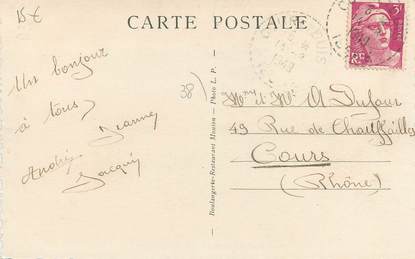 15€
CARTE POSTALE
Un bonjour
à tous,
Jeanne
André,
Jacqui
38)
Boulangerie-Restaurant Mission - Photo L. P.
1949
3F
RF
Mme et Mr A Dufour
49 Rue de Chauffailles
Cours
(Rhône)